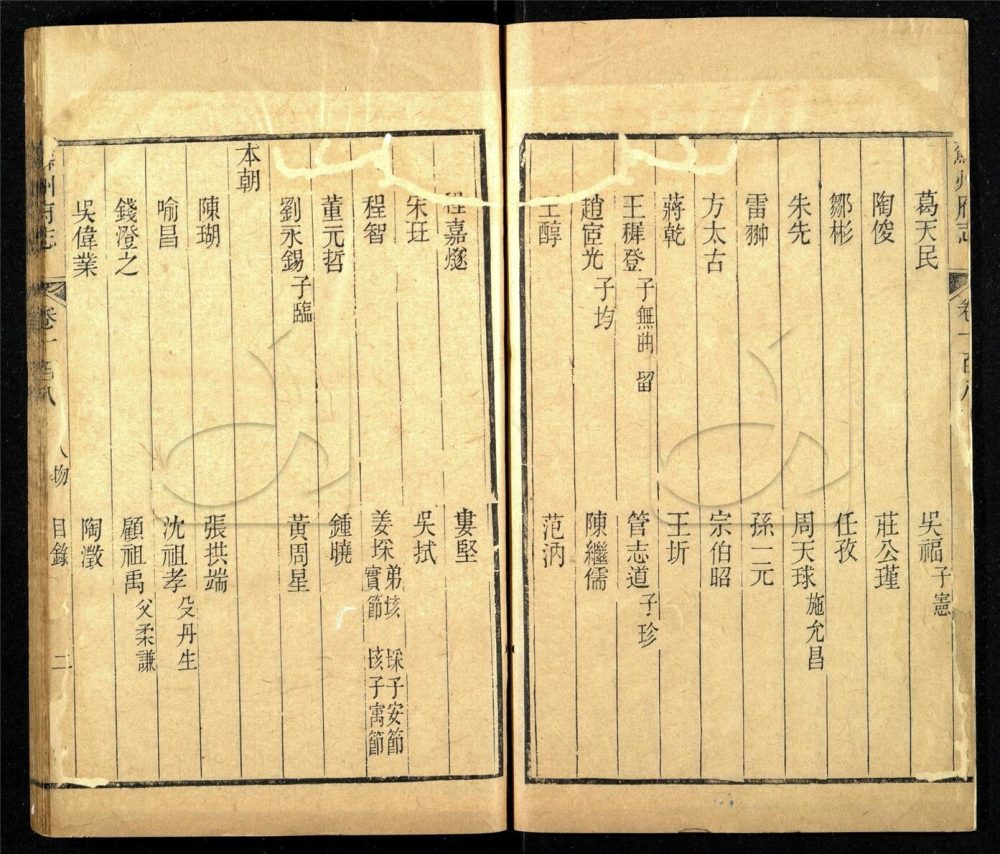 蘇州府志 卷一百八
葛天民 吳福子憲
陶俊 莊公瑾
鄒彬 任孜
朱先 周天球施允昌
雷翀 孫一元
方太古 宗伯昭
蔣乾 王圻
王穉登子無曲 留 管志道子珍
趙宧光子均 陳繼儒
王醇 范汭
程嘉燧 婁堅
宋珏 吳拭
程智 姜埰弟垓 埰子安節 實節 垓子寓節
董元哲 鍾曉
劉永錫子臨 黃周星
本朝
陳瑚 張拱端
喻昌 沈祖孝殳丹生
錢澄之 顧祖禹父柔謙
吳偉業 陶澂
蘇州府志 卷一百八 人物 目錄 二